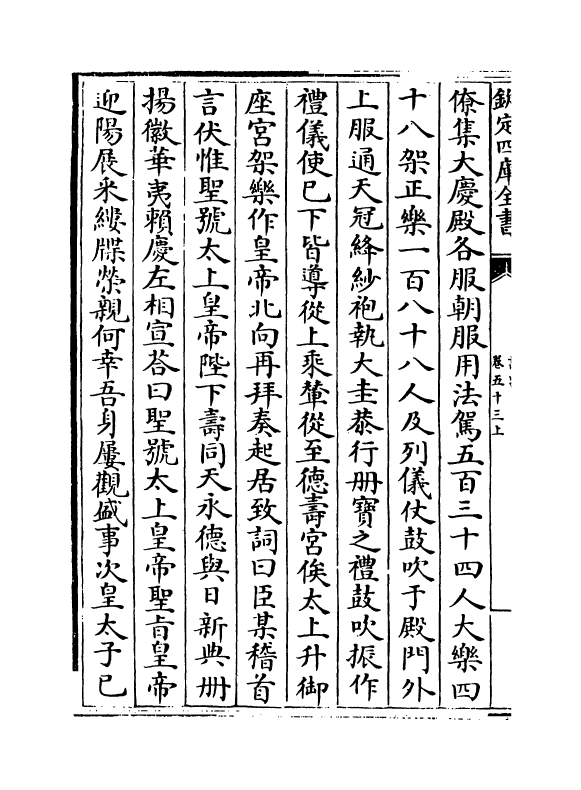 欽定四庫全書
卷五十三上
僚集大慶殿各服朝服用法駕五百三十四人大樂四
十八架正樂一百八十八人及列儀仗鼓吹于殿門外
上服通天冠絳紗袍執大圭恭行册寶之禮鼓吹振作
禮儀使已下皆導從上乘輦從至德壽宮俟太上升御
座宮架樂作皇帝北向再拜奏起居致詞曰臣某稽首
言伏惟聖號太上皇帝陛下壽同天永德與日新典册
揚徽華夷賴慶左相宣荅曰聖號太上皇帝聖旨皇帝
迎陽展采縷牒榮親何幸吾身屢觀盛事次皇太子已